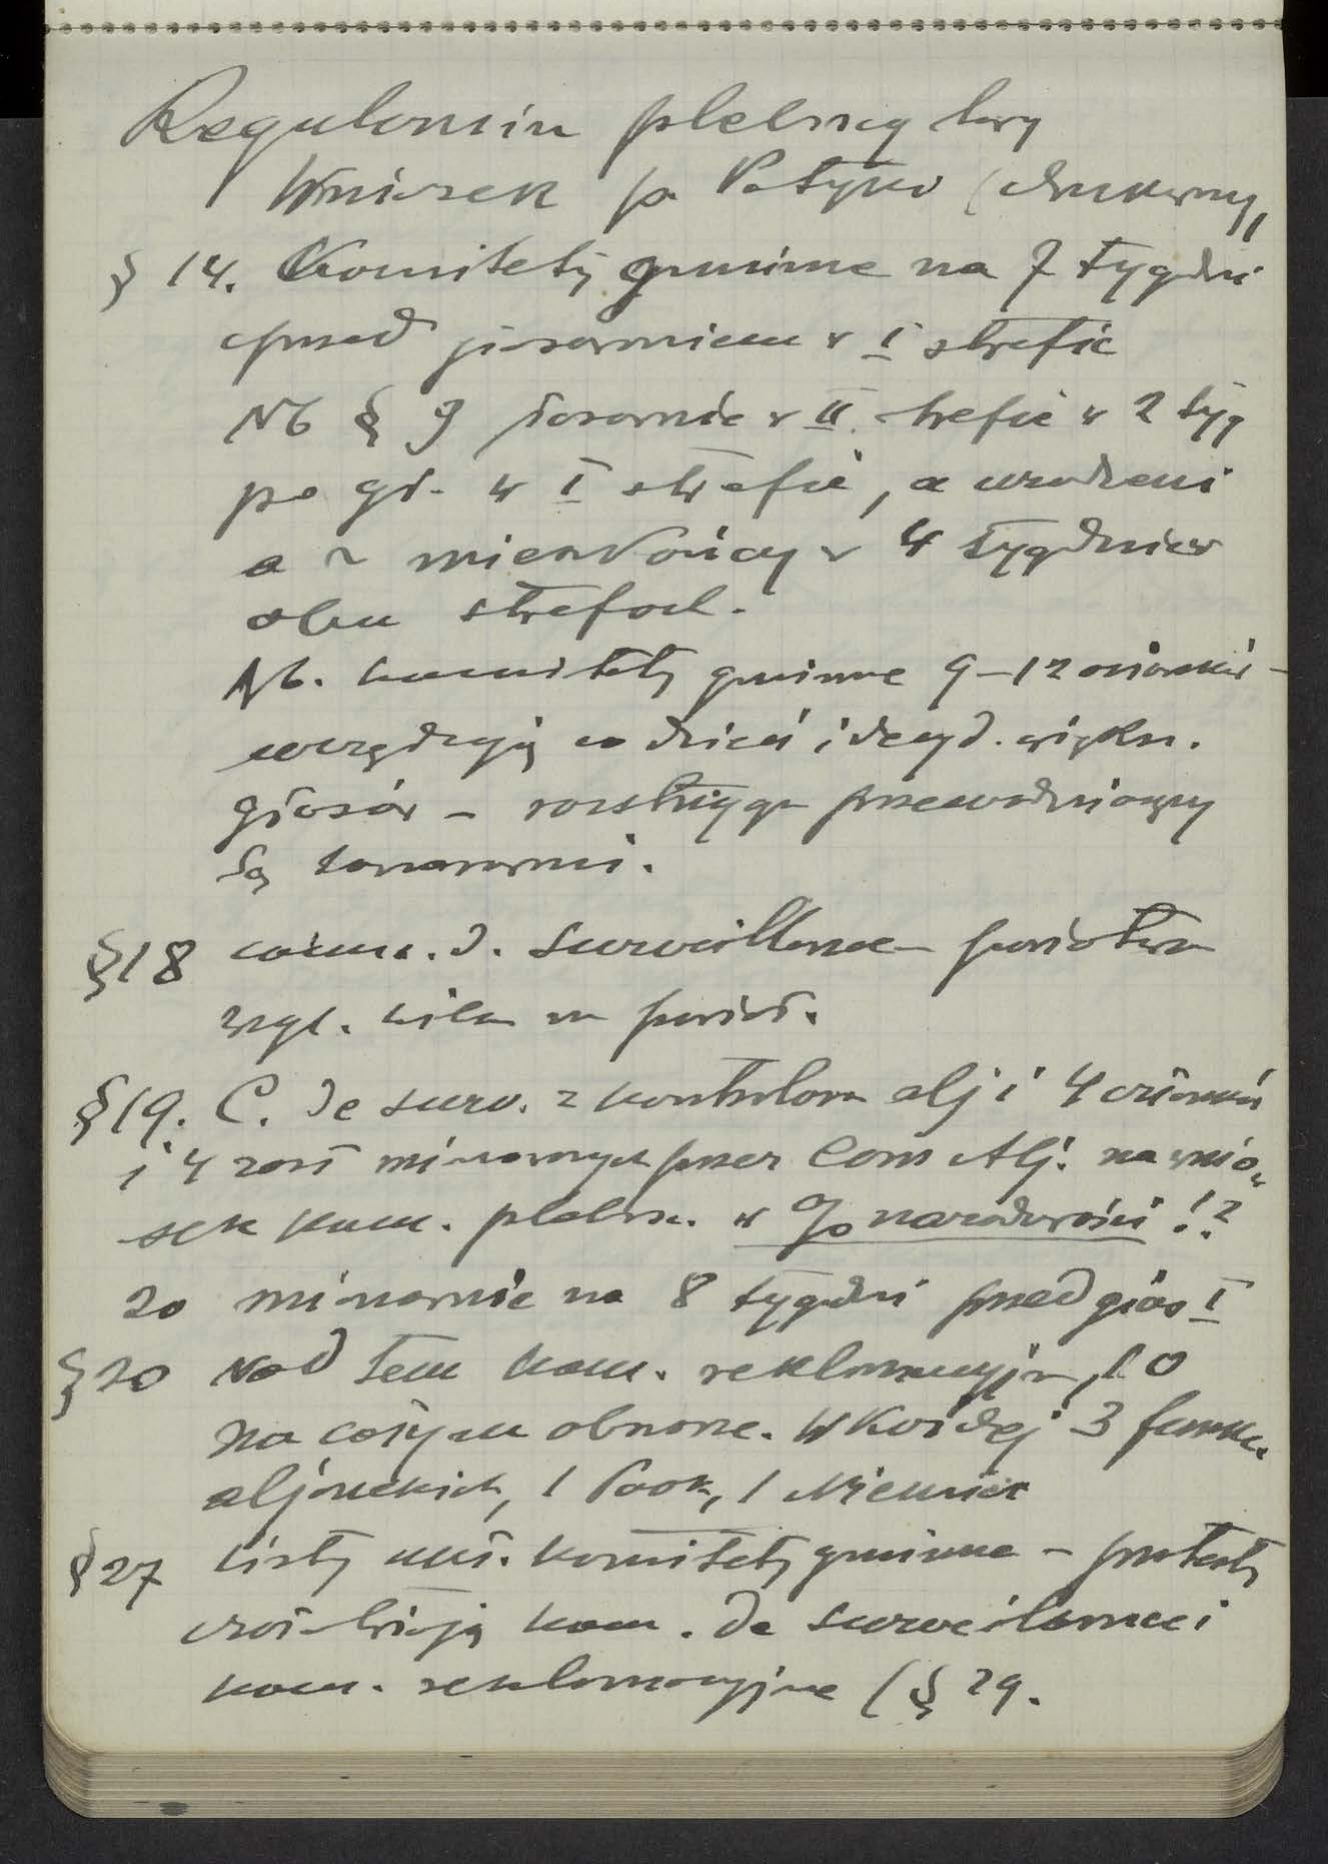 Regulamin plebiscytowy
Wniosek p. Patyka (drukowany)
§ 14. Komitety gminne na 7 tygodni
przed głosowaniem w I strefie
Nb § 9 głosowanie w II strefie w 2 tyg
po gł. w I strefie, a urodzeni
a nie mieszkańcy w 4 tygodnie w
obu strefach.
Nb. komitety gminne 9–12 członków –
urzędują co dzień i decyd. większ.
głosów – rozstrzyga przewodniczący
Są
§ 18 comm. d. surveillance powiatowa
wzgl. kilka na powiat.
§ 19. C. de surv. z kontrolora alj i 4 członków
i 4 zast mianowanych przez Com Alj. na wnio-
sek kom. plebisc. w % narodowości !?
20 mianowanie na 8 tygodni przed głos I
§ 20 Nad tem kom. reklamacyjna, 10
na całym obszarze. W każdej 3 funkc.
aljanckich, 1 Polak, 1 Niemiec
§ 27 Listy ukł. komitety gminne – protesty
rozstrzygają kom. de surveillance i
kom. reklamacyjne (§ 29.